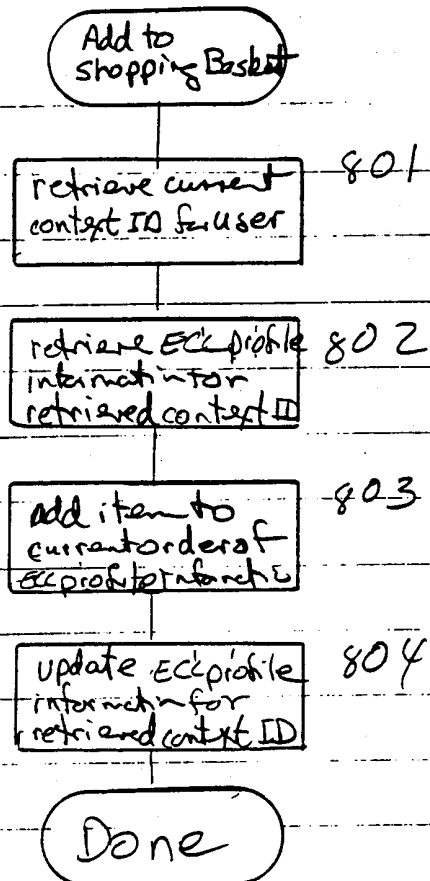 Add to
shopping Basket
801
retrieve current
context ID for user
802
retrieve profile
information for
retrieved context ID
803
add item to
current order of
profile information
804
update profile
information for
retrieved context ID
Done